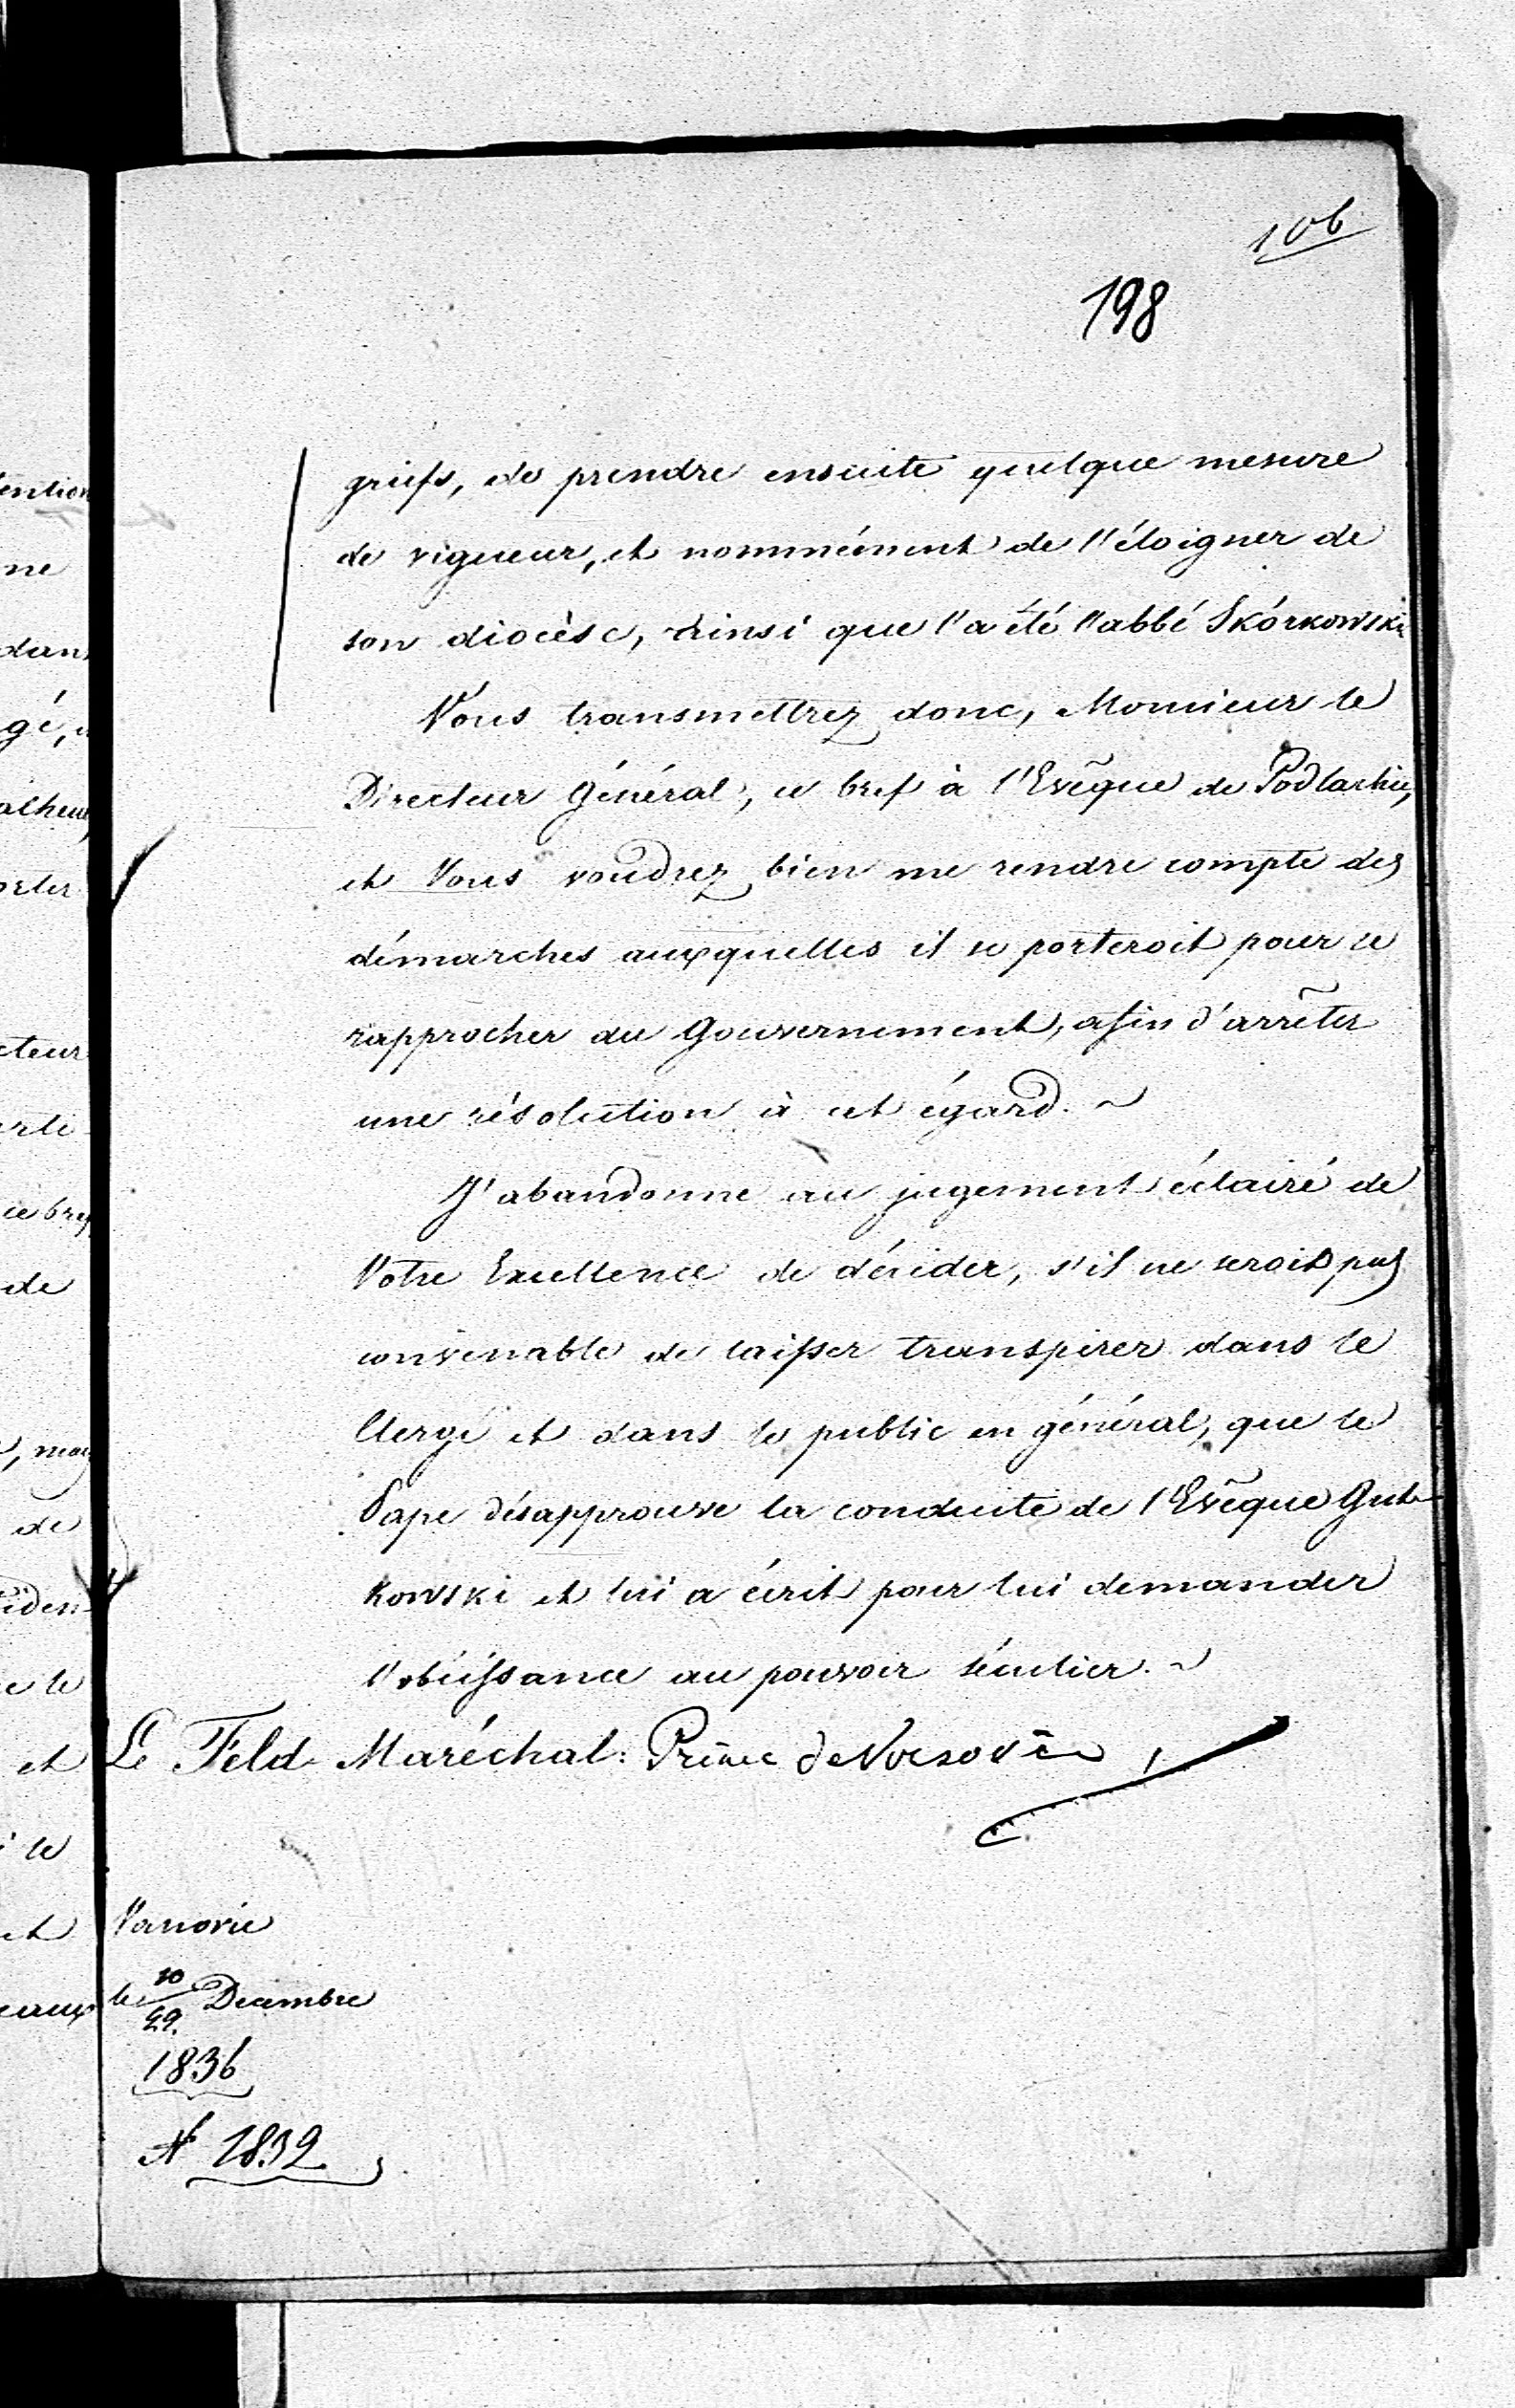 106
198
griefs, de prendre ensuite quelque mesure
de vigueur, et nommément de l'éloigner de
son diocèse, ainsi que l'a été l'abbé Skórkowski
Vous transmettrez donc, Monsieur le
Directeur Général, ce bref à l'Evêque de Podlachie,
et Vous voudrez bien me rendre compte des
démarches auxquelles il se porteroit pour se
rapprocher du Gouvernement, afin d'arrêter
une résolution à cet égard. ~
J'abandonne au jugement éclairé de
Votre Excellence de décider, s'il ne seroit pas
convenable de laisser transpirer dans le
Clergé et dans le public en général, que le
Pape désapprouve la conduite de l'Evêque Gut-
kowski et lui a écrit pour lui demander
l'obéissance au pouvoir séculier. ~
Le Feld Maréchal: Prince de Varsovie
Varsovie
le 10/29. Decembre
1836
N 1832